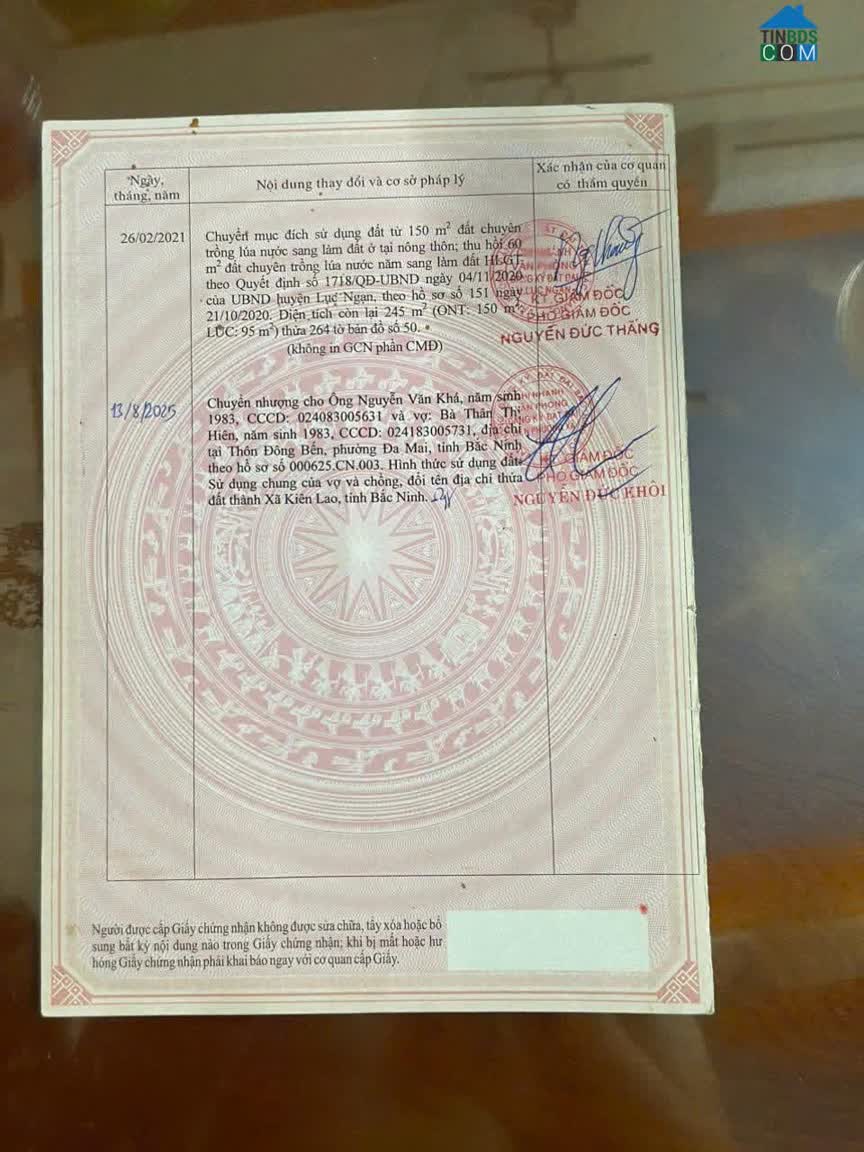 TINBDS
COM
Ngày,
tháng, năm
Nội dung thay đổi và cơ sở pháp lý
Xác nhận của cơ quan
có thẩm quyền
26/02/2021
Chuyển mục đích sử dụng đất từ 150 m² đất chuyên
trồng lúa nước sang làm đất ở tại nông thôn; thu hồi 60
m² đất chuyên trồng lúa nước năm sang làm đất HLGT
theo Quyết định số 1718/QĐ-UBND ngày 04/11/2020
của UBND huyện Lục Ngạn, theo hồ sơ số 151 ngày
21/10/2020. Diện tích còn lại 245 m² (ONT: 150 m²
LUC: 95 m²) thửa 264 tờ bản đồ số 50.
(không in GCN phần CMĐ)
KT. GIÁM ĐỐC
PHÓ GIÁM ĐỐC
NGUYỄN ĐỨC THẮNG
13/8/2025
Chuyển nhượng cho Ông Nguyễn Văn Khá, năm sinh
1983, CCCD: 024083005631 và vợ: Bà Thân Thị
Hiên, năm sinh 1983, CCCD: 024183005731, địa chỉ
tại Thôn Đông Bến, phường Đa Mai, tỉnh Bắc Ninh
theo hồ sơ số 000625.CN.003. Hình thức sử dụng đất:
Sử dụng chung của vợ và chồng, đổi tên địa chỉ thửa
đất thành Xã Kiên Lao, tỉnh Bắc Ninh.
KT. GIÁM ĐỐC
PHÓ GIÁM ĐỐC
NGUYỄN ĐỨC KHÔI
Người được cấp Giấy chứng nhận không được sửa chữa, tẩy xóa hoặc bổ
sung bất kỳ nội dung nào trong Giấy chứng nhận; khi bị mất hoặc hư
hỏng Giấy chứng nhận phải khai báo ngay với cơ quan cấp Giấy.